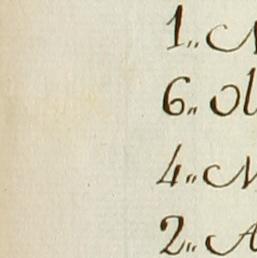 1„
6„ Ol
4„
2„ A